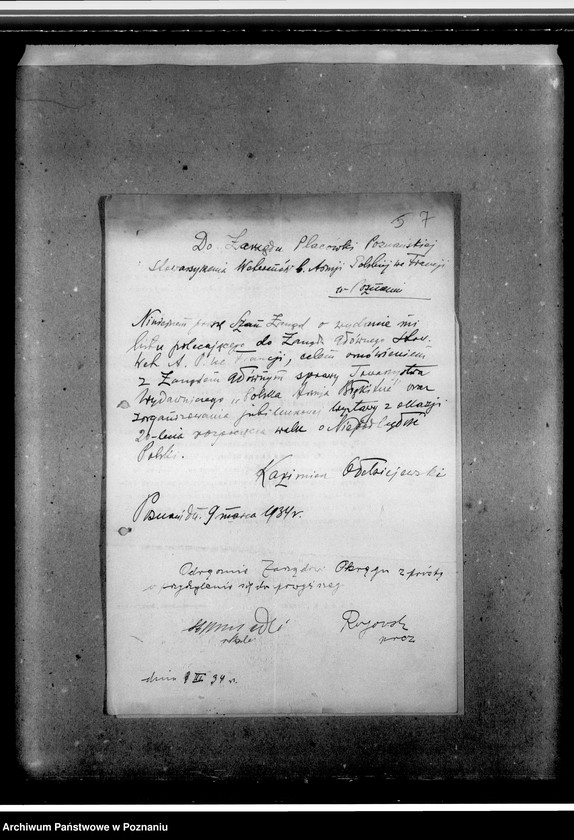 57
Do Zarządu Placówki Poznańskiej
Stowarzyszenia Weteranów b. Armji Polskiej we Francji
w Poznaniu
Niniejszem proszę Szan. Zarząd o wydanie mi
listu polecającego do Zarządu Głównego Stow.
Wet. A. P. we Francji, celem omówienia
z Zarządem Głównym sprawy Towarzystwa
Wydawniczego "Polska Armja Błękitna" oraz
zorganizowania jubileuszowej wystawy z okazji
20-lecia rozpoczęcia walk o Niepodległość
Polski.
Kazimierz
Poznań dn. 9 marca 1934 r.
Zarządowi Okręgu z prośbą
o przychylenie się do powyższego
dnia 9 III 34 r.
Archiwum Państwowe w Poznaniu